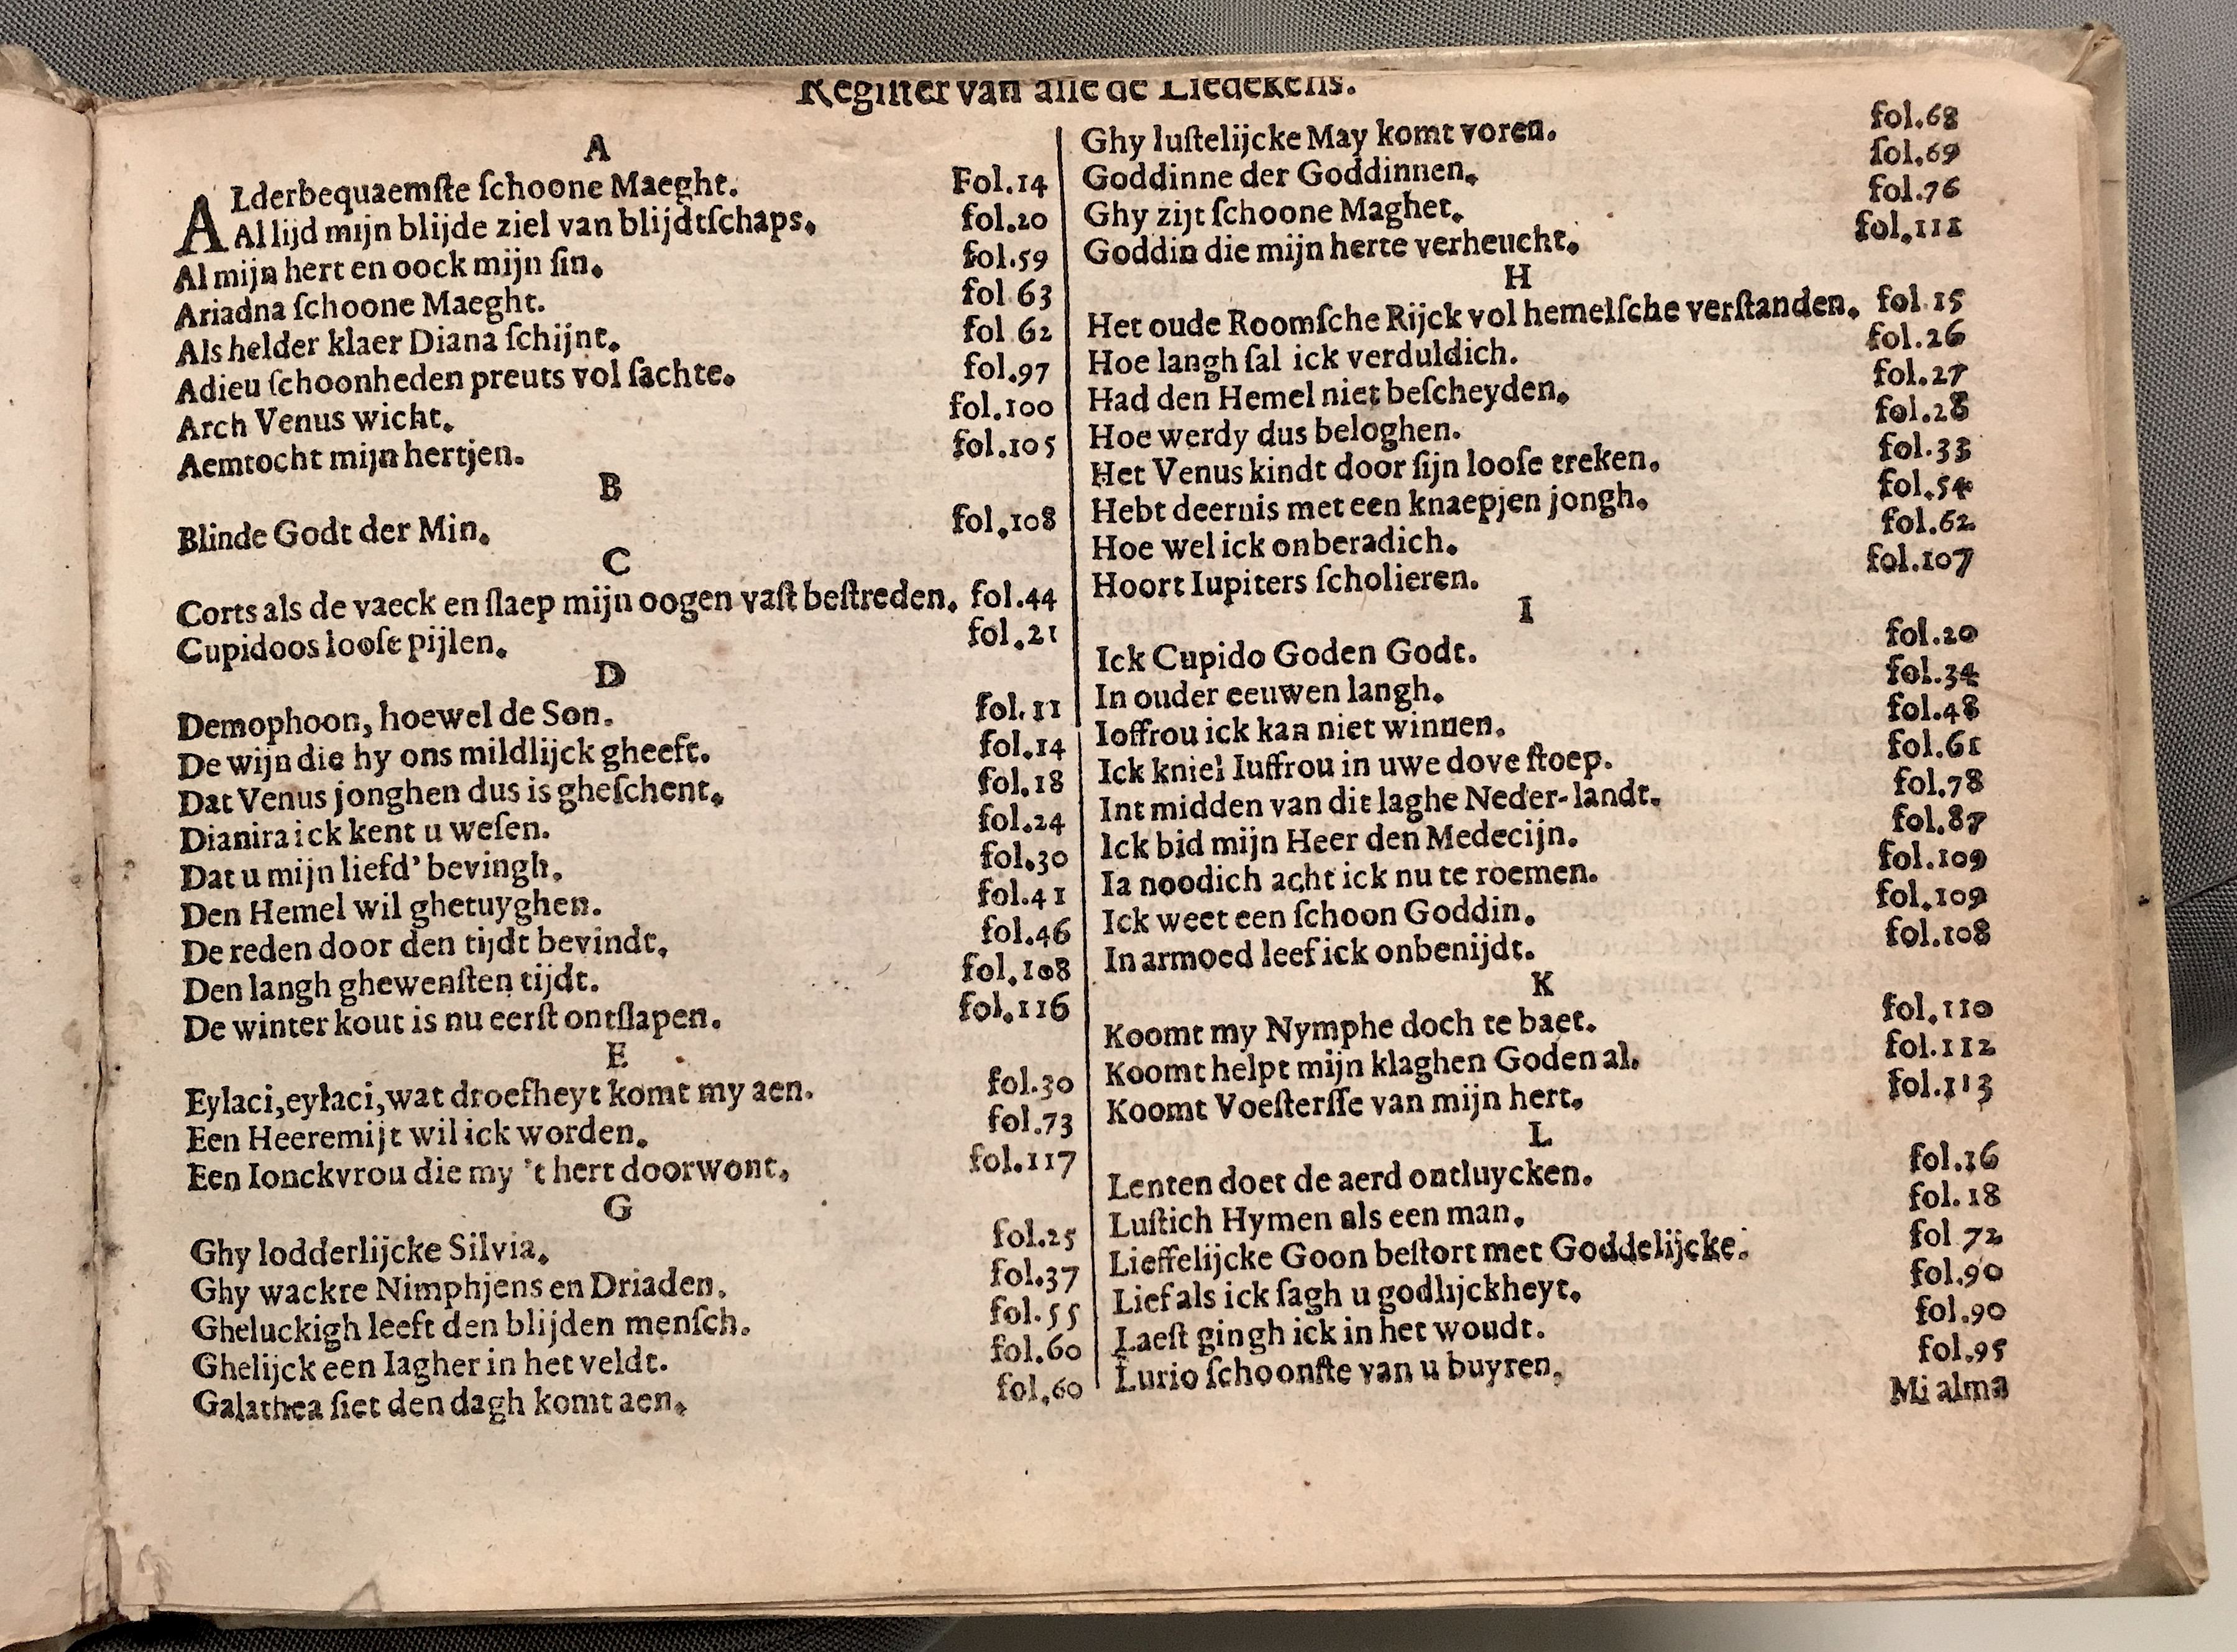 Regiſter van alle de Liedekens.
A
ALderbequaemſte ſchoone Maeght. Fol.14
Al lijd mijn blijde ziel van blijdtſchaps. fol.20
Al mijn hert en oock mijn ſin. fol.59
Ariadna ſchoone Maeght. fol 63
Als helder klaer Diana ſchijnt. fol 62
Adieu ſchoonheden preuts vol ſachte. fol.97
Arch Venus wicht. fol.100
Aemtocht mijn hertjen. fol.105
B
Blinde Godt der Min. fol.108
C
Corts als de vaeck en ſlaep mijn oogen vaſt beſtreden. fol.44
Cupidoos looſe pijlen. fol.21
D
Demophoon, hoewel de Son. fol.11
De wijn die hy ons mildlijck gheeft. fol.14
Dat Venus jonghen dus is gheſchent. fol.18
Dianira ick kent u weſen. fol.24
Dat u mijn liefd' bevingh. fol.30
Den Hemel wil ghetuyghen. fol.41
De reden door den tijdt bevindt. fol.46
Den langh ghewenſten tijdt. fol.108
De winter kout is nu eerſt ontſlapen. fol.116
E
Eylaci,eylaci,wat droefheyt komt my aen. fol.30
Een Heeremijt wil ick worden. fol.73
Een Ionckvrou die my 't hert doorwont. fol.117
G
Ghy lodderlijcke Silvia. fol.25
Ghy wackre Nimphjens en Driaden. fol.37
Gheluckigh leeft den blijden menſch. fol.55
Ghelijck een Iagher in het veldt. fol.60
Galathea ſiet den dagh komt aen. fol.60
Ghy luſtelijcke May komt voren. fol.68
Goddinne der Goddinnen. fol.69
Ghy zijt ſchoone Maghet. fol.76
Goddin die mijn herte verheucht. fol.111
H
Het oude Roomſche Rijck vol hemelſche verſtanden. fol.15
Hoe langh ſal ick verduldich. fol.26
Had den Hemel niet beſcheyden. fol.27
Hoe werdy dus beloghen. fol.28
Het Venus kindt door ſijn looſe treken. fol.33
Hebt deernis met een knaepjen jongh. fol.54
Hoe wel ick onberadich. fol.62
Hoort Iupiters ſcholieren. fol.107
I
Ick Cupido Goden Godt. fol.20
In ouder eeuwen langh. fol.34
Ioffrou ick kan niet winnen. fol.48
Ick kniel Iuffrou in uwe dove ſtoep. fol.61
Int midden van dit laghe Neder-landt. fol.78
Ick bid mijn Heer den Medecijn. fol.87
Ia noodich acht ick nu te roemen. fol.109
Ick weet een ſchoon Goddin. fol.109
In armoed leef ick onbenijdt. fol.108
K
Koomt my Nymphe doch te baet. fol.110
Koomt helpt mijn klaghen Goden al. fol.112
Koomt Voeſterſſe van mijn hert. fol.113
L
Lenten doet de aerd ontluycken. fol.16
Luſtich Hymen als een man. fol.18
Lieffelijcke Goon beſtort met Goddelijcke. fol 72
Lief als ick ſagh u godlijckheyt. fol.90
Laeſt gingh ick in het woudt. fol.90
Lurio ſchoonſte van u buyren. fol.95
Mi alma